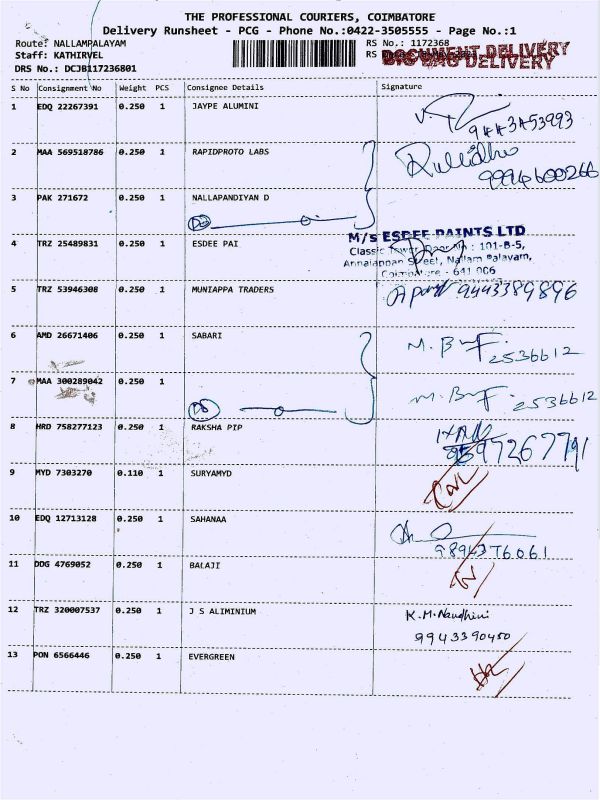 THE PROFESSIONAL COURIERS, COIMBATORE
Delivery Runsheet - PCG - Phone No.:0422-3505555 - Page No.:1
Route: NALLAMPALAYAM RS No.: 1172368
Staff: KATHIRVEL RS
DOCUMENT DELIVERY
DRS No.: DCJB117236801
S No Consignment No Weight PCS Consignee Details Signature
1 EDQ 22267391 0.250 1 JAYPE ALUMINI
9443453993
2 MAA 569518786 0.250 1 RAPIDPROTO LABS
9994600266
3 PAK 271672 0.250 1 NALLAPANDIYAN D
M/s ESDEE PAINTS LTD
4 TRZ 25489831 0.250 1 ESDEE PAI
Classic Tower, Door No : 101-B-5,
Annaiappan Street, Nallam Palayam,
Coimbatore - 641 006
5 TRZ 53946308 0.250 1 MUNIAPPA TRADERS 9443389896
6 AMD 26671406 0.250 1 SABARI
2536612
7 MAA 300289042 0.250 1
2536612
8 HRD 758277123 0.250 1 RAKSHA PIP
9597267791
9 MYD 7303270 0.110 1 SURYAMYD
10 EDQ 12713128 0.250 1 SAHANAA
9894376061
11 DDG 4769052 0.250 1 BALAJI
12 TRZ 320007537 0.250 1 J S ALIMINIUM K.M.Nandhini
9943390450
13 PON 6566446 0.250 1 EVERGREEN